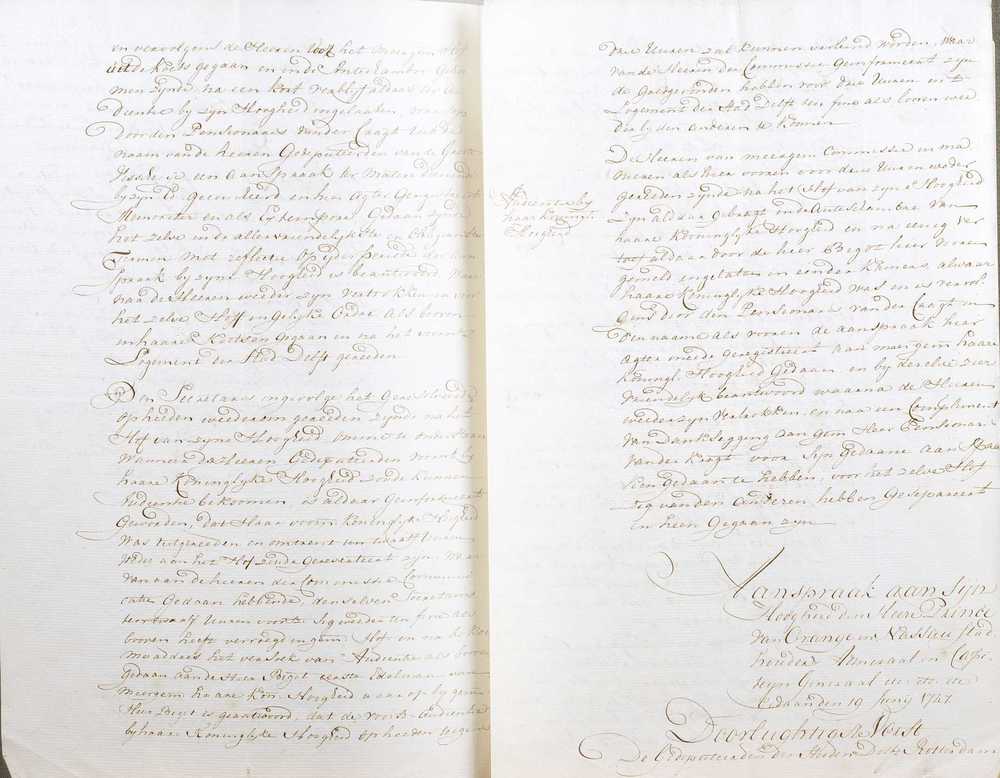 en vervolgens de Heeren uijt het meergem. Hof
uit de koets gegaan en in de Antichamber geko
men zynde, na een kort verblyf aldaar ter au
dientie by zyn Hoogheid voorgelaaten, waar op
door den Pensionaris vander Caagt uit de
naam vande heeren Gedeputeerden vande Groote
Visserije een aanspraak ter materie dienende
by zyn Ed. geconcipieerd en hier agter geregistreert
gedaan zynde
het zelve in de allervriendelykste en
Termen met reflectie op yder periode der aan
spraak by zyne Hoogheid is beantwoord, waar
na de Heeren weeder zyn vertrokken en voor
het zelve Hoff in gelyke order als boven
in haare koetsen gegaan en na het voorn.
Logement der Stad Delft gereeden.
Den Secretaris ingevolge het
op heeden weederom gereeden zynde na het
Hof van zyne Hoogheid, omme te onderstaan
wanneer de Heeren Gedeputeerden voorn. by
haare Koninglyke Hoogheid zoude kunnen
audientie bekoomen, is aldaar geinformeert
geworden, dat Haar voorn. Koninglyke Hoogheid
was uitgereeden en omtrent ten twaalf uuren
weder aan het Hof zoude geretourneert zyn, waar
van aan de heeren der Commissie Communi
catie gedaan hebbende, denselven Secretaris
ten twaalf uuren voorts sig weeder ten fine als
boven heeft vervoegd in gem. Hof en na
het versoek van Audientie als boven
gedaan aan de Heer Bigot eerste Edelman van
meergem. haare Kon. Hoogheid waar op by gem.
Heer Bigot is geantwoord, dat de voorsz. audientie
by haare Koninglyke Hoogheid op heeden tegens
drie uuren zal kunnen verleend worden, waar
van de Heeren der Commissie geinformeert zyn
de goedgevonden hebben voor drie uuren in 't
Logement der Stad Delft ten fine als boven wee
der by den anderen te komen
Audientie by
haar Koningl.
Hoogheid
De Heeren van meergem. Commissie in ma
nieren als hier vooren voor drie uuren weder
gereeden zynde na het Hof van zyn Hoogheid
zyn aldaar gebragt in de Antichambre van
haare Koninglyke Hoogheid en na eenig ver
toef aldaar door de heer Bigot hier vooren
gemeld ingelaten in een der kamers, alwaar
haare Koninglyke Hoogheid was en is vervol
gens door den Pensionaris van der Caagt in
den naame als vooren de aanspraak hier
agter meede geregistreert aan meergem. haare
Koningl. Hoogheid gedaan en by deselve zeer
vriendelyk beantwoord waarna de Heeren
weeder zyn vertrokken, en naar een Compliment
van Dankzegging aan gem. Heer Pensionaris
vander Kaagt voor Syn gedaane aanspraa
ken gedaan te hebben, voor het zelve Hof
sig van den anderen hebben gesepareert
en heen gegaan zyn
Aanspraak aan Sijn
Hoogheid den Heere Prince
van Orange en Nassau stad
houder Admiraal en Cap-
teijn Generaal etc. etc. etc.
Gedaan den 19 Juny 1747.
Doorlughtigste Vorst
De Gedeputeerden der steden Delft Rotterdam